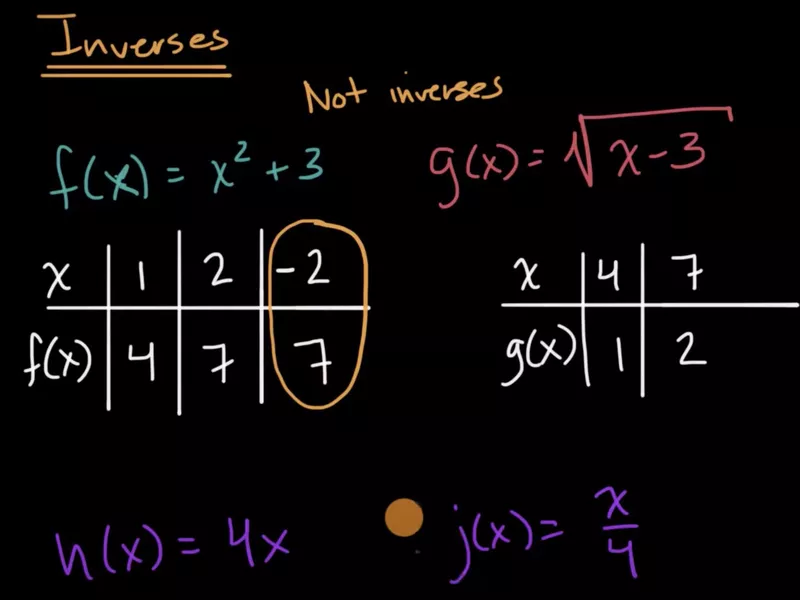 Inverses
Not inverses
f(x) = x² + 3
g(x) = √(x - 3)
x 1 2 -2
f(x) 4 7 7
x 4 7
g(x) 1 2
h(x) = 4x
j(x) = x/4